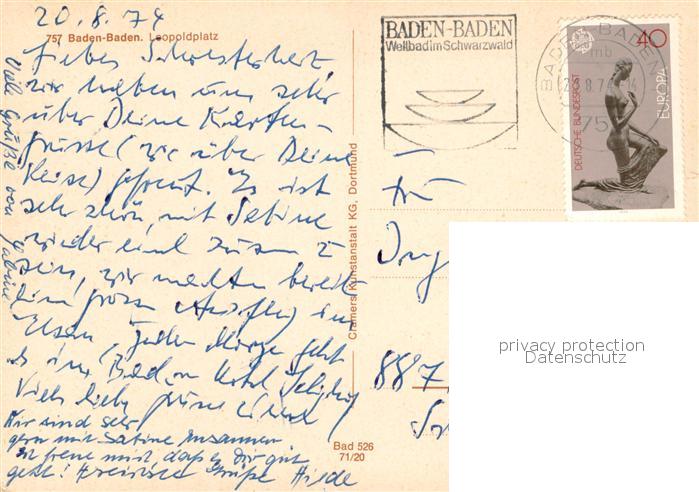 20.8.74
757 Baden-Baden. Leopoldplatz
Liebes Schwesterherz,
wir haben uns sehr
über Deine Karten-
grüsse (wie über Deine
Reise) gefreut. Es ist
sehr schön, mit Sabine
wieder einmal zusam
sein, wir machten bereits
einen grossen Ausflug ins
Elsass, jeden Morgen geht
es ins Bad, im Hotel
Viele liebe Grüsse
Wir sind sehr
gern mit Sabine zusammen
ich freue mich, daß es Dir gut
geht! Herzlichste Grüße Hilde
Viele Grüße von Sabine
Cramers Kunstanstalt KG, Dortmund
Bad 526
71/20
BADEN-BADEN
Weltbad im Schwarzwald
BADEN-BADEN
mb
8.74
75
DEUTSCHE BUNDESPOST
EUROPA
40
Frau
Ing
887
privacy protection
Datenschutz